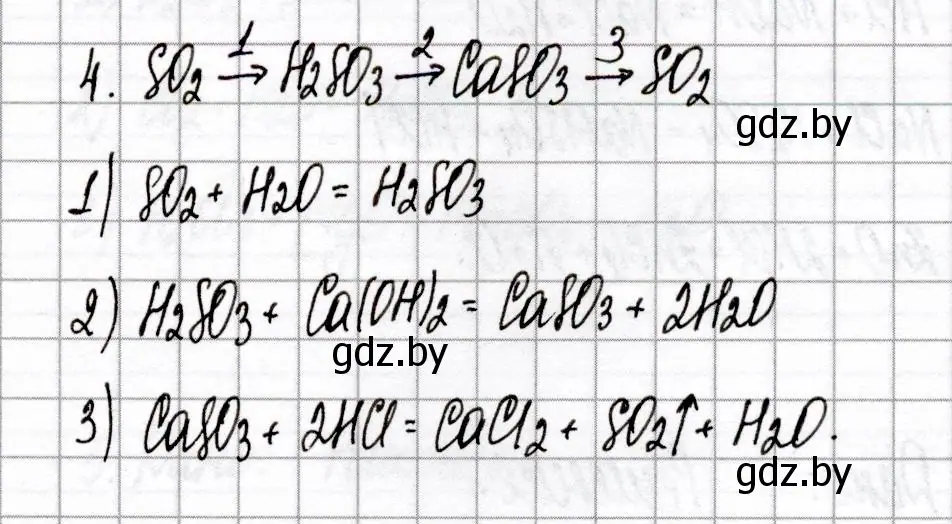 4. SO₂ →¹ H₂SO₃ →² CaSO₃ →³ SO₂
gdz.by
1) SO₂ + H₂O = H₂SO₃
2) H₂SO₃ + Ca(OH)₂ = CaSO₃ + 2H₂O
gdz.by
3) CaSO₃ + 2HCl = CaCl₂ + SO₂↑ + H₂O.
gdz.by